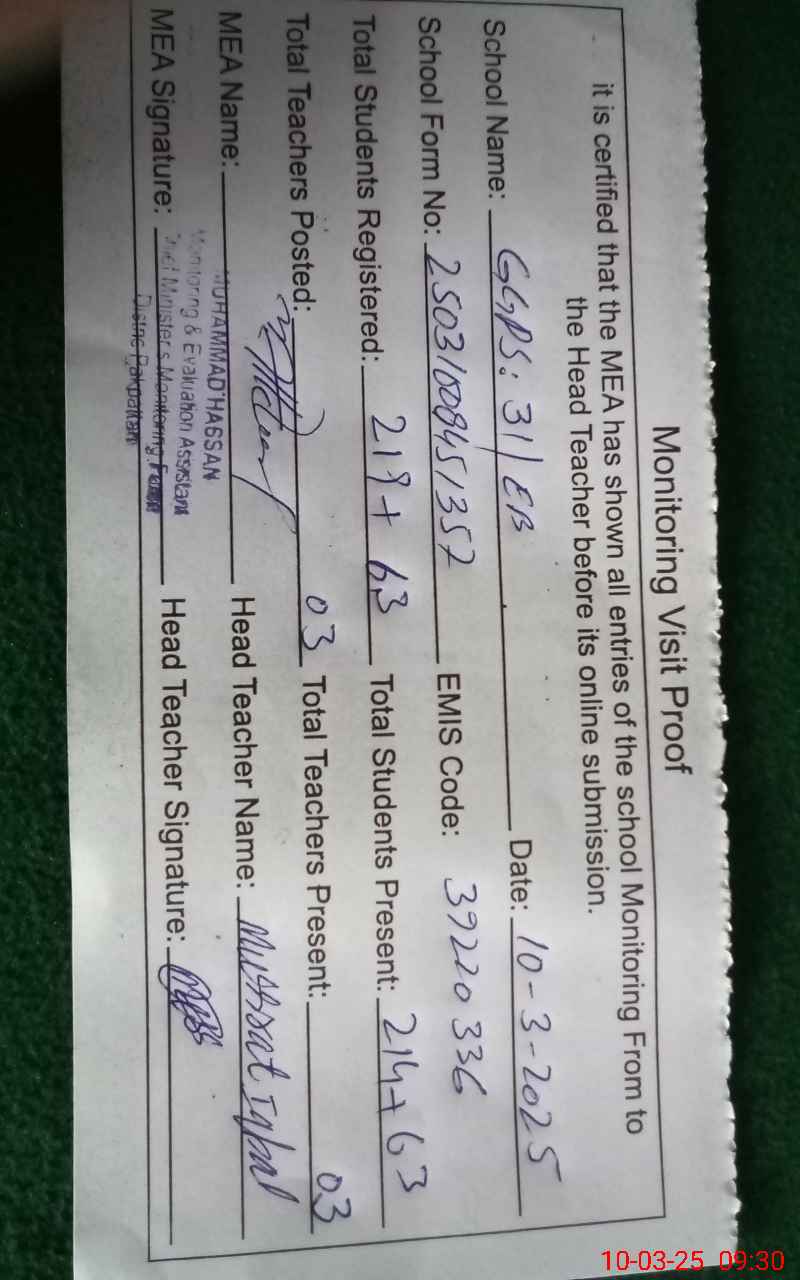 Monitoring Visit Proof
it is certified that the MEA has shown all entries of the school Monitoring From to
the Head Teacher before its online submission.
School Name: GGPS: 31/EB Date: 10-3-2025
School Form No: 2503100845/357 EMIS Code: 39220336
Total Students Registered: 219+ 63 Total Students Present: 214+ 63
Total Teachers Posted: 03 Total Teachers Present: 03
MEA Name: Head Teacher Name: Mussrat Iqbal
MUHAMMAD HASSAN
Monitoring & Evaluation Assistant
Chief Minister's Monitoring Force
District Pakpattan
MEA Signature: Head Teacher Signature:
10-03-25 09:30